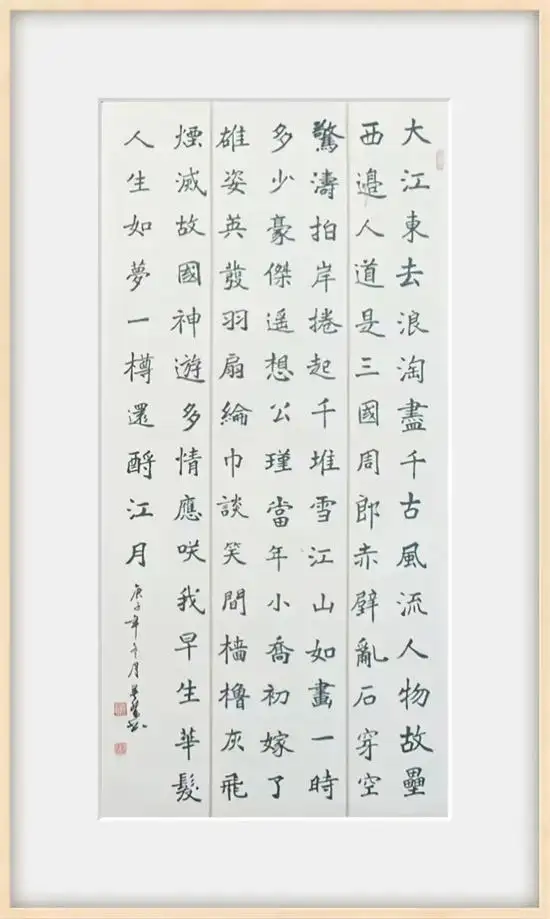 大江東去浪淘盡千古風流人物故壘
西邊人道是三國周郎赤壁亂石穿空
驚濤拍岸捲起千堆雪江山如畫一時
多少豪傑遥想公瑾當年小喬初嫁了
雄姿英發羽扇綸巾談笑間檣櫓灰飛
煙滅故國神遊多情應咲我早生華髮
人生如夢一樽還酹江月
庚子年